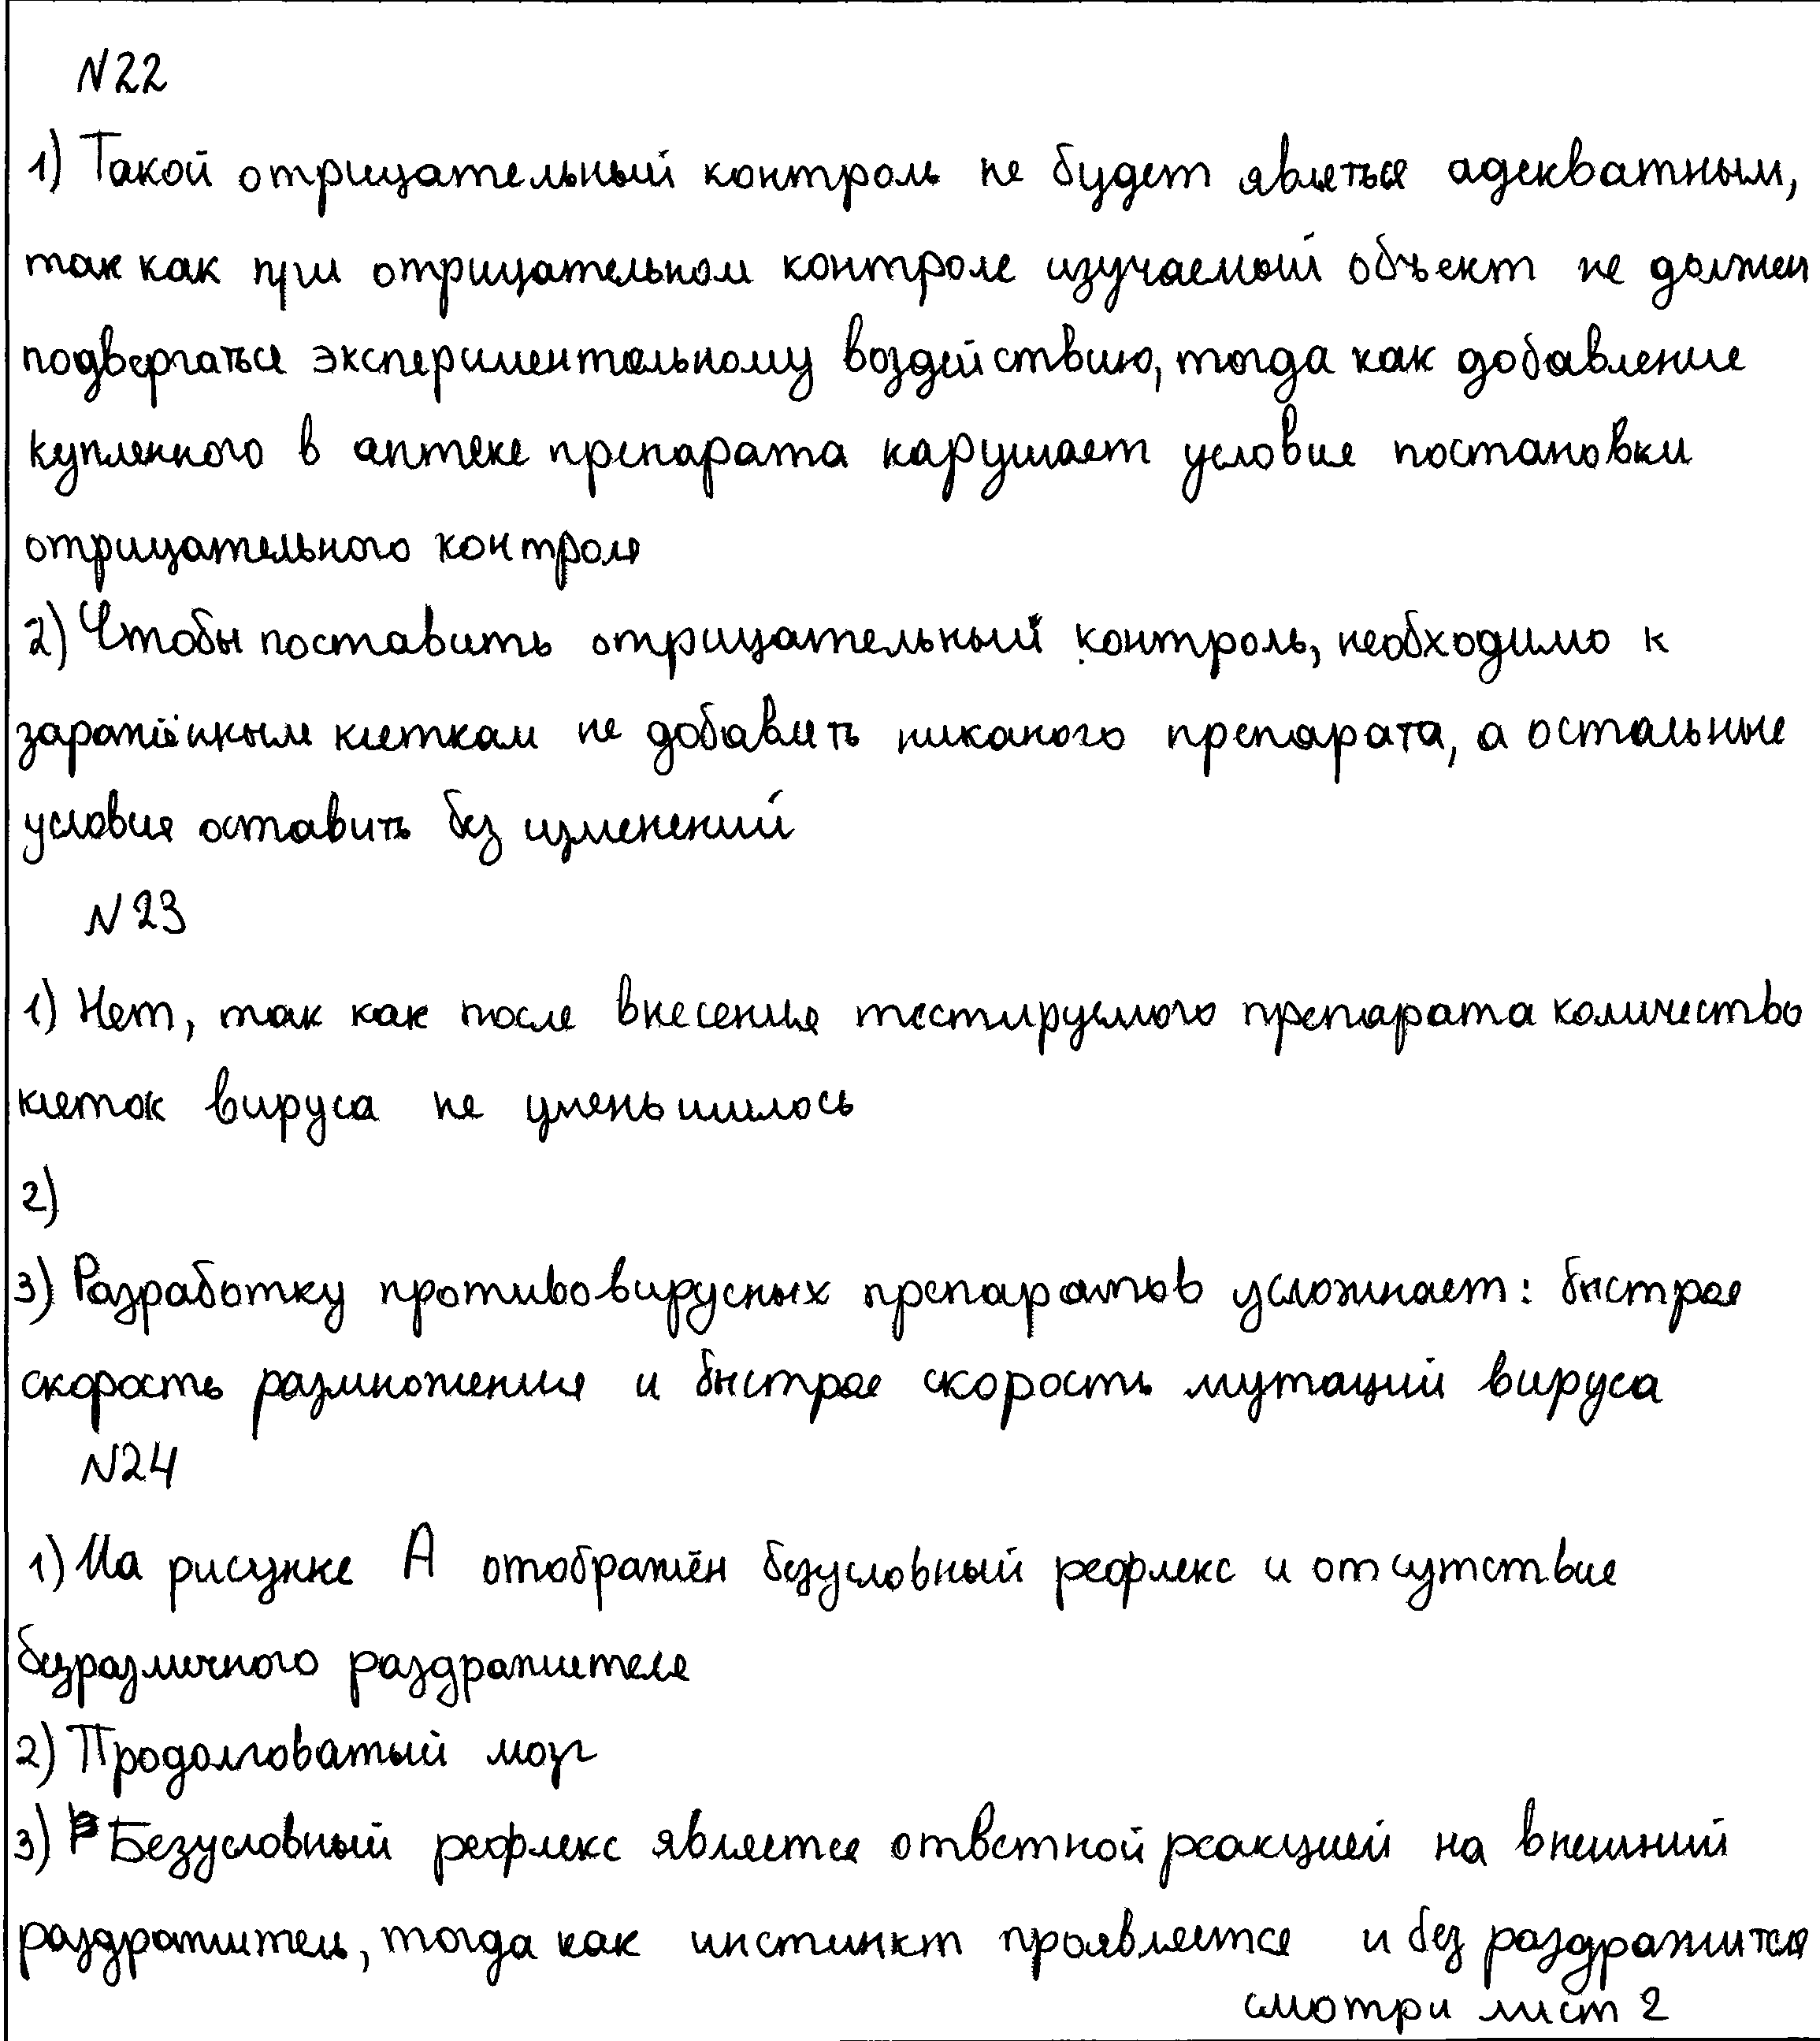 N22
1) Такой отрицательный контроль не будет являться адекватным,
так как при отрицательном контроле изучаемый объект не должен
подвергаться экспериментальному воздействию, тогда как добавление
купленного в аптеке препарата нарушает условие постановки
отрицательного контроля
2) Чтобы поставить отрицательный контроль, необходимо к
заражённым клеткам не добавлять никакого препарата, а остальные
условия оставить без изменений
N23
1) Нет, так как после внесения тестируемого препарата количество
клеток вируса не уменьшилось
2)
3) Разработку противовирусных препаратов усложняет: быстрая
скорость размножения и быстрая скорость мутаций вируса
N24
1) На рисунке А отображён безусловный рефлекс и отсутствие
безразличного раздражителя
2) Продолговатый мозг
3) Безусловный рефлекс является ответной реакцией на внешний
раздражитель, тогда как инстинкт проявляется и без раздражителя
смотри лист 2